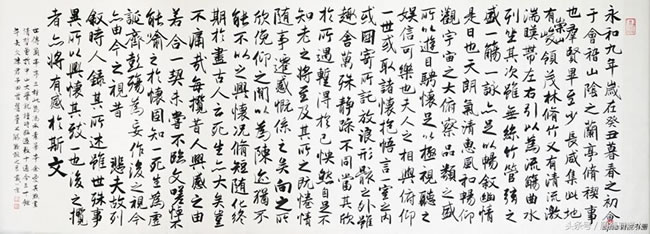 永和九年歲在癸丑暮春之初會
于會稽山陰之蘭亭脩禊事
也群賢畢至少長咸集此地
有崇峻領茂林脩竹又有清流激
湍暎帶左右引以為流觴曲水
列坐其次雖無絲竹管弦之
盛一觴一詠亦足以暢敘幽情
是日也天朗氣清惠風和暢仰
觀宇宙之大俯察品類之盛
所以遊目騁懷足以極視聽之
娛信可樂也夫人之相與俯仰
一世或取諸懷抱悟言一室之內
或因寄所託放浪形骸之外雖
趣舍萬殊靜躁不同當其欣
於所遇暫得於己快然自足不
知老之將至及其所之既惓情
隨事遷感慨係之矣向之所
欣俛仰之間以為陳迹猶不
能不以之興懷況脩短隨化終
期於盡古人云死生亦大矣豈
不痛哉每攬昔人興感之由
若合一契未嘗不臨文嗟悼不
能喻之於懷固知一死生為虛
誕齊彭殤為妄作後之視今
亦由今之視昔 悲夫故列
敘時人錄其所述雖世殊事
異所以興懷其致一也後之攬
者亦將有感於斯文